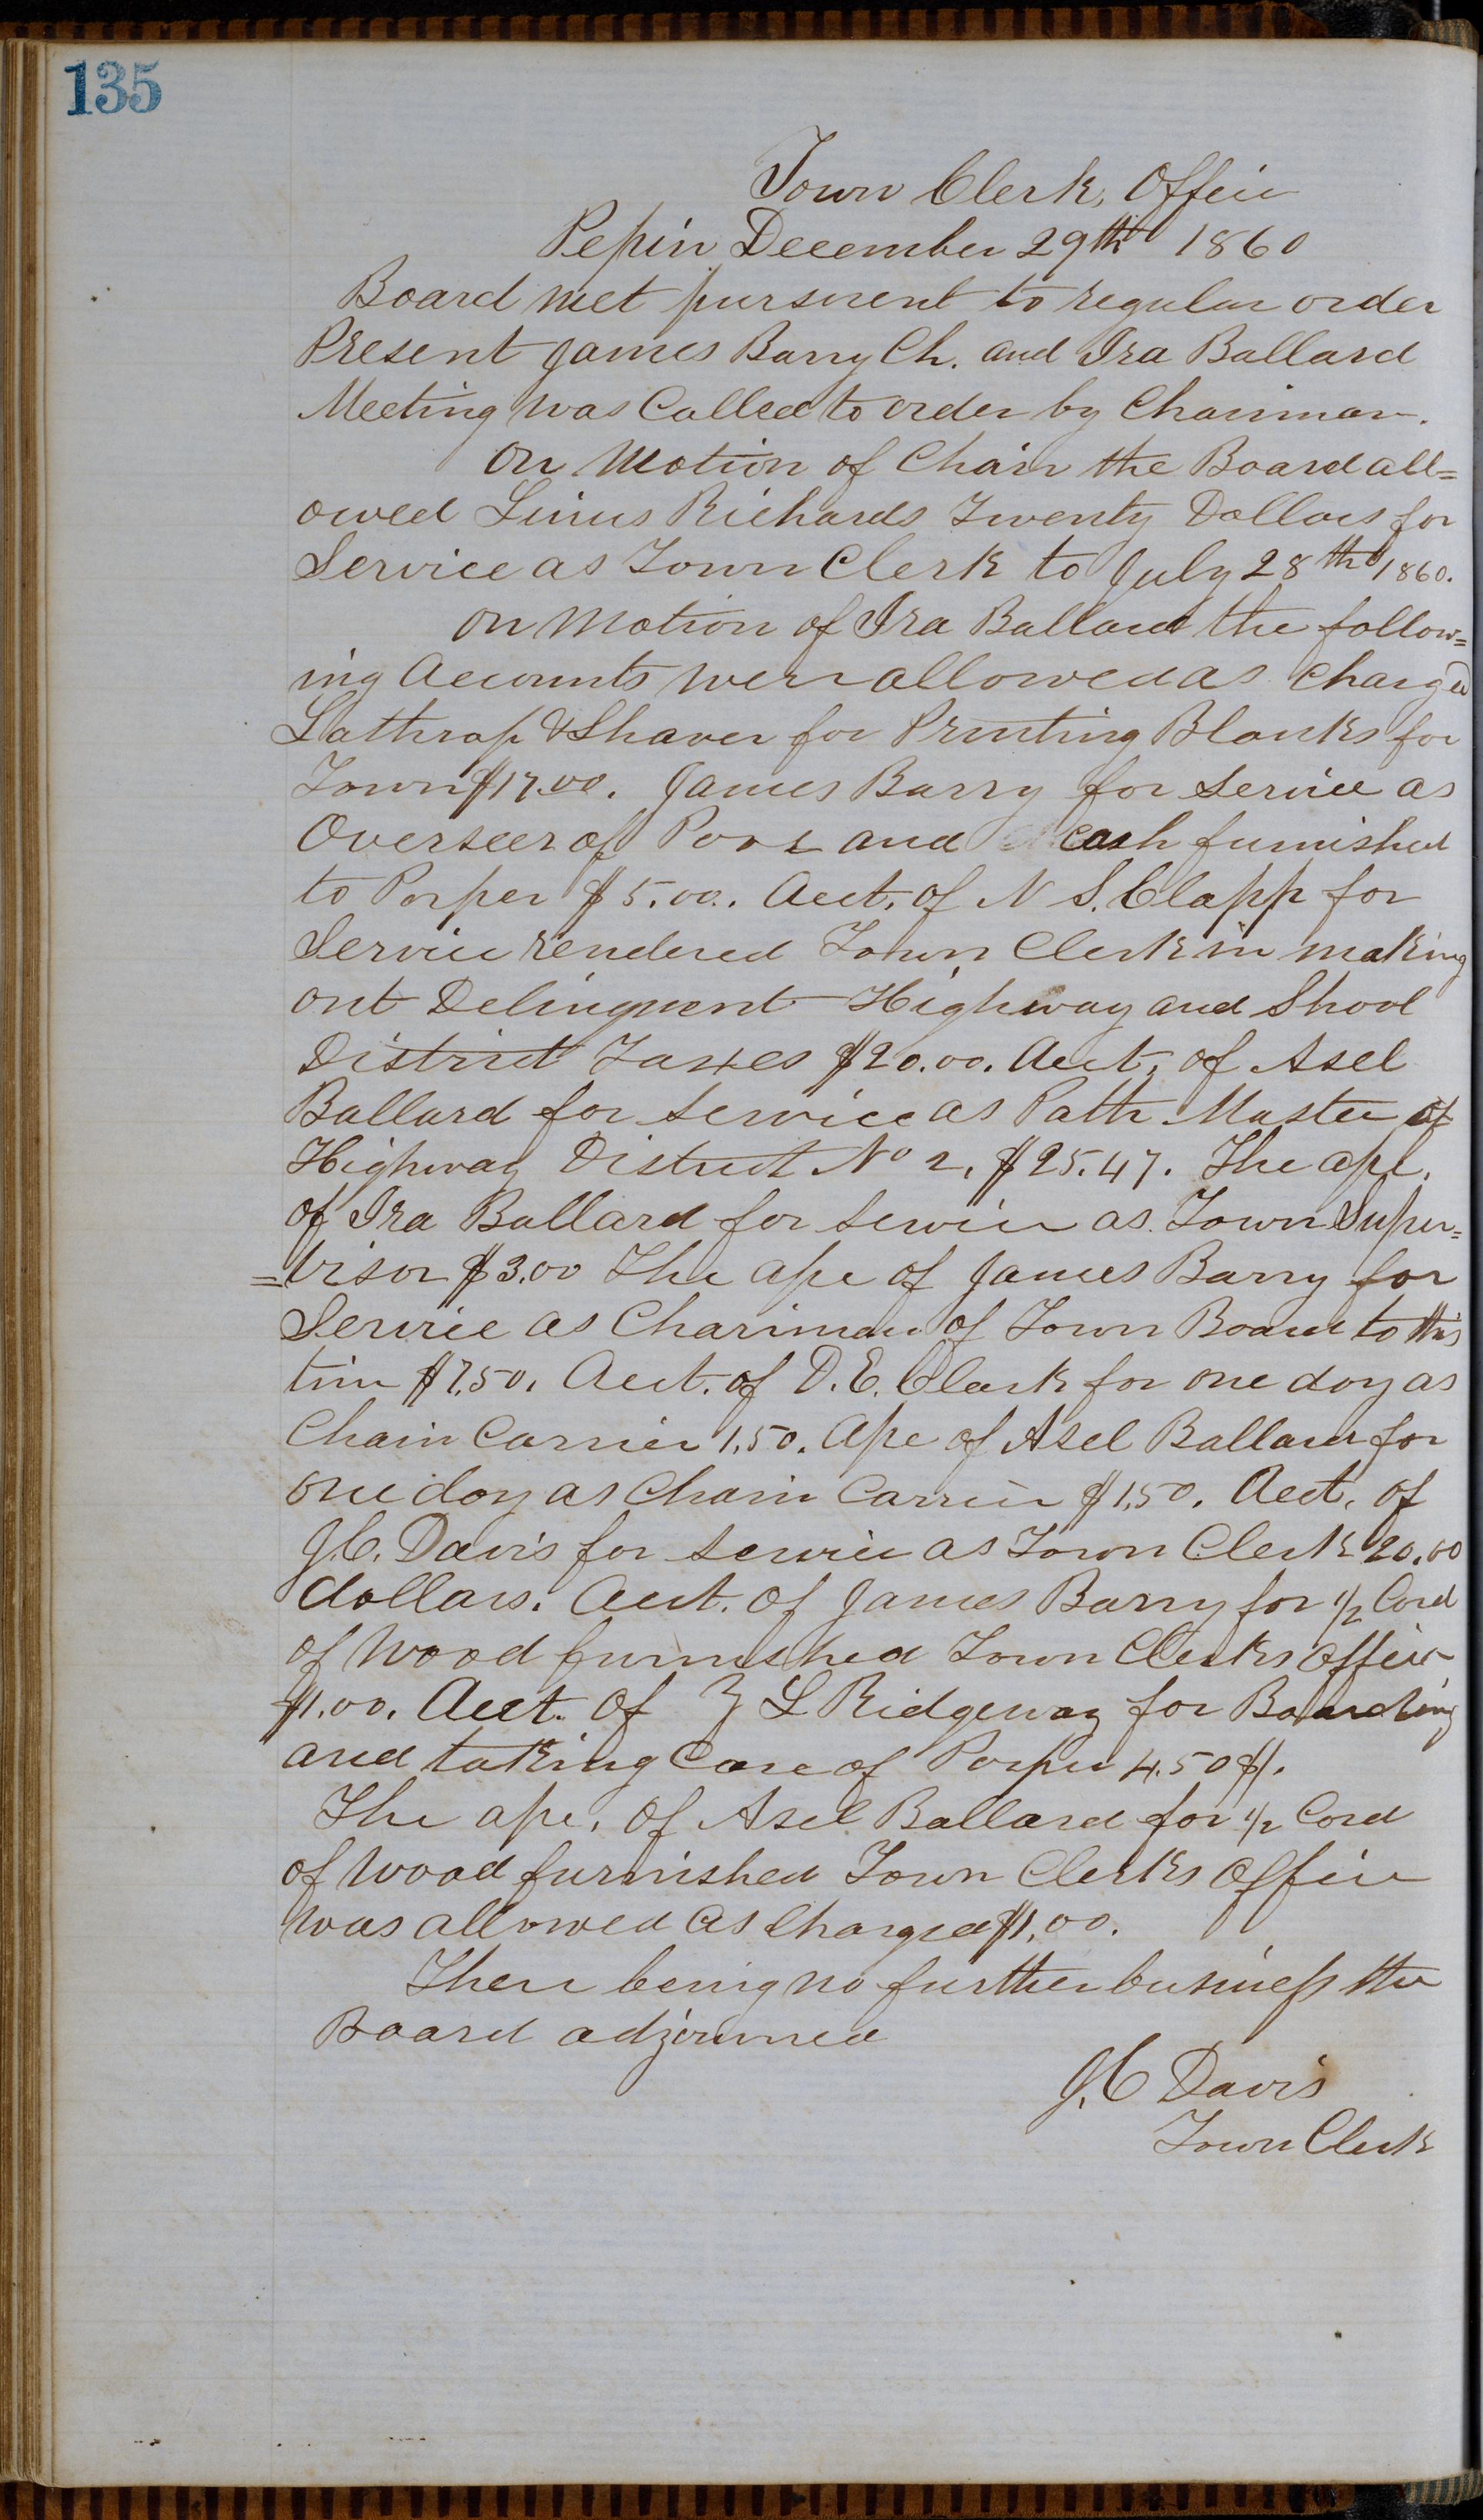 135
Town Clerk, Office
Pepin December 29th 1860
Board met pursuent to regular order
Present James Barry Ch. and Ira Ballard
Meeting was Called to order by Chairman.
On Motion of Chair the Board all=
owed Linus Richards Twenty Dollars for
Service as Town Clerk to July 28th 1860.
On Motion of Ira Ballard the follow=
ing Accounts were allowed as Charged
Lathrop & Shaver for Printing Blanks for
Town $17.00. James Barry for Service as
Overseer of Poor and Cash furnished
to Porper $5.00. Acct. of N S. Clapp for
Service rendered Town Clerk in making
out Delinquent Highway and Shool
District Taxes $20.00. Acct. of Asel
Ballard for Service as Path Master of
Highway District No 2, $25.47. The apc.
of Ira Ballard for Service as Town Super=
=visor $3.00 The apc of James Barry for
Service as Chariman of Town Board to this
time $7.50. Acct. of D. E. Clark for one day as
Chain Carrier 1.50. Apc of Asel Ballard for
one day as Chain Carrier $1.50. Acct. of
J. C. Davis for service as Town Clerk 20.00
dollars. Acct. of James Barry for 1/2 Cord
of Wood furnished Town Clerks Office
$1.00. Acct. of L Ridgeway for Boarding
and taking Care of Porper 4.50 $.
The apc. of Asel Ballard for 1/2 Cord
of Wood furnished Town Clerks Office
was allowed as Charged $1.00.
There being no further business the
Board adjourned
J. C Davis
Town Clerk